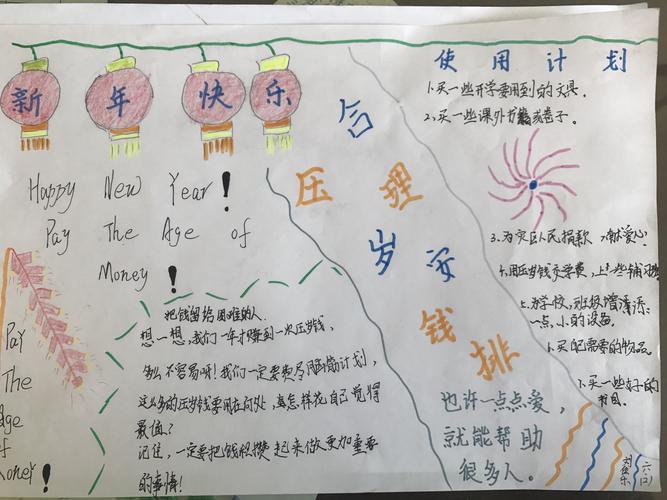 新年快乐
Happy New Year!
Pay The Age of
Money!
Pay
The
Age
of
Money!
把钱留给困难的人
想一想,我们一年才赚到一次压岁钱,
多么不容易呀!我们一定要
计划,
这么多的压岁钱要用在何处,
怎样花自己觉得
最值?
记住,一定要把钱积攒起来做更加重要
的事情!
合理安排
压岁钱
也许一点点爱,
就能帮助
很多人。
使用计划
1.买一些开学要用到的文具。
2.买一些课外书籍或卷子。
3.为灾区人民捐款,献爱心!
4.用压岁钱交学费,上一些辅习班
5.为学校,班级增清添
一点,小的设备。
6.买自己需要的物品。
7.买一些好的
书目。
六(2)